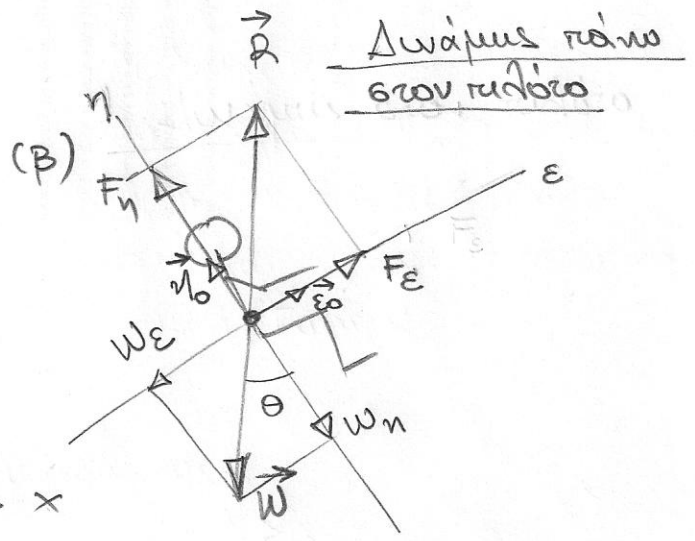 Δυνάμεις πάνω
στον πιλότο
R
η
(β)
Fη
ε
Fε
η₀
ε₀
Wε
θ
Wη
W
x